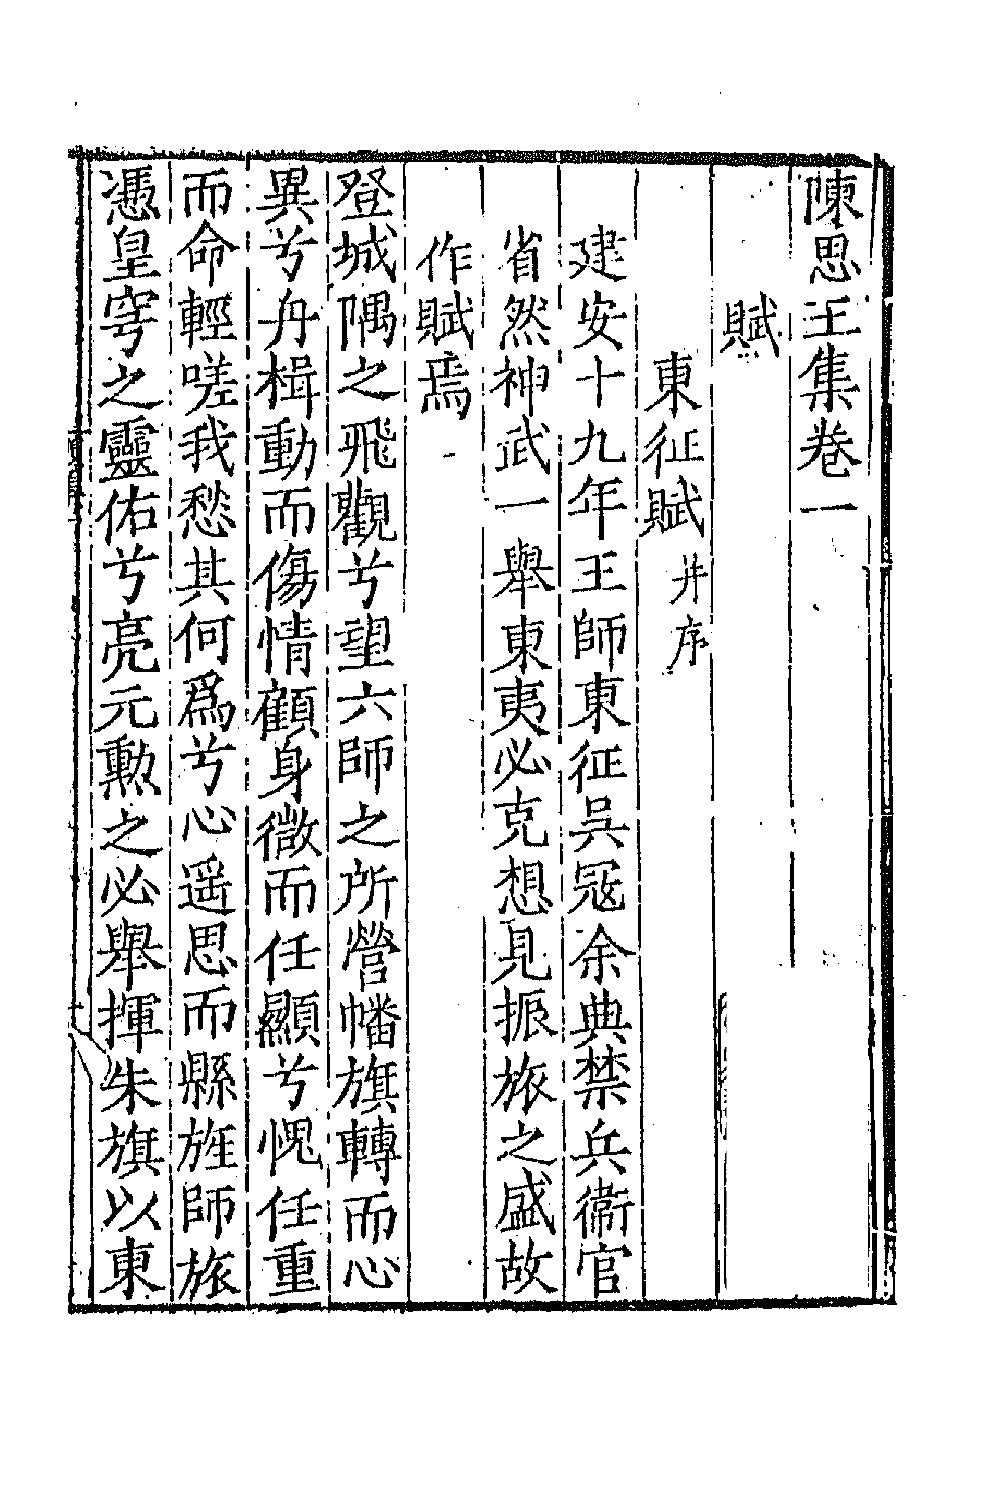 陳思王集卷一
賦
東征賦 并序
建安十九年王師東征吳寇余典禁兵衞官
省然神武一舉東夷必克想見振旅之盛故
作賦焉
登城隅之飛觀兮望六師之所營幡旗轉而心
異兮舟楫動而傷情顧身微而任顯兮愧任重
而命輕嗟我愁其何爲兮心遥思而縣旌師旅
憑皇穹之靈佑兮亮元勲之必舉揮朱旗以東